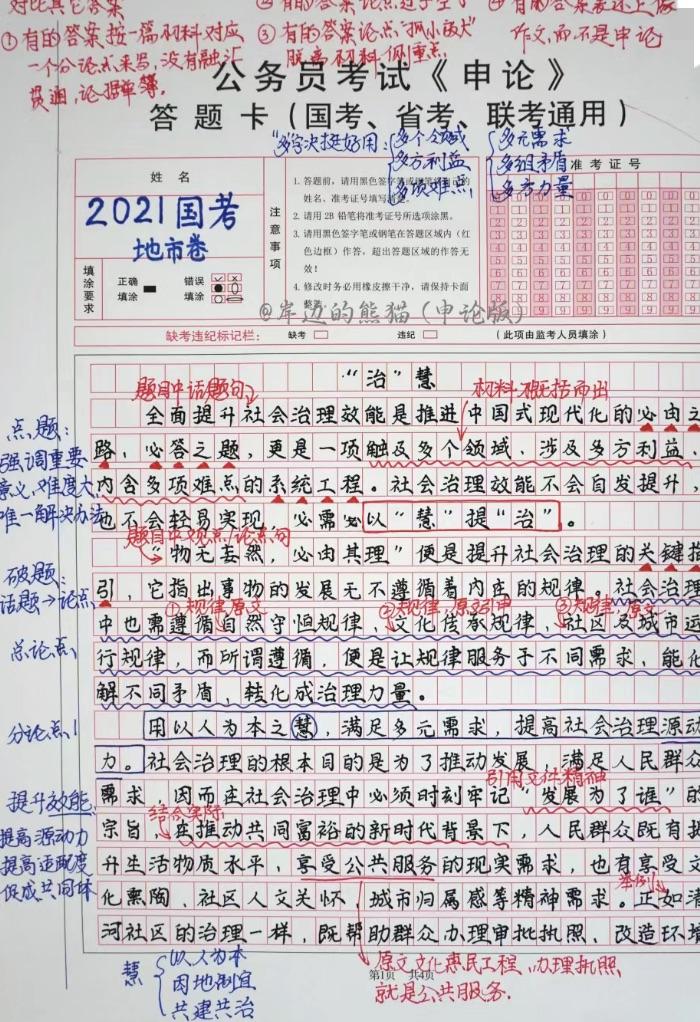 对比其它答案
① 有的答案按一篇材料对应
一个分论点来写,没有融汇
贯通,论据单薄.
③ 有的答案论点"抓小放大"
脱离材料侧重点
作文,而不是申论
公务员考试《申论》
答题卡(国考、省考、联考通用)
"多"字决挺好用:
多个领域
多方利益
多项难点
多元需求
多组矛盾
多方力量
准考证号
姓名
2021国考
地市卷
注意事项
1. 答题前,请用黑色签字笔或钢笔将自己的
姓名、准考证号填写清楚。
2. 请用 2B 铅笔将准考证号所选项涂黑。
3. 请用黑色签字笔或钢笔在答题区域内(红
色边框)作答,超出答题区域的作答无
效!
4. 修改时务必用橡皮擦干净,请保持卡面
整洁
填涂要求
正确填涂
错误填涂
@岸边的熊猫(申论版)
缺考违纪标记栏:
缺考
违纪
(此项由监考人员填涂)
"治"慧
题目中话题句
材料概括而出
全面提升社会治理效能是推进中国式现代化的必由之
路、必答之题,更是一项触及多个领域、涉及多方利益、
内含多项难点的系统工程。社会治理效能不会自发提升,
也不会轻易实现,必需以"慧"提"治"。
点题:
强调重要
意义、难度大、
唯一解决办法
题目中观点/论点句
"物无妄然,必由其理"便是提升社会治理的关键指
引,它指出事物的发展无不遵循着内在的规律。社会治理
①规律,原文
②规律,原文引申
③规律,原文
中也需遵循自然守恒规律、文化传承规律、社区及城市运
行规律,而所谓遵循,便是让规律服务于不同需求,能化
解不同矛盾,转化成治理力量。
破题:
话题→论点
总论点
分论点1
用以人为本之慧,满足多元需求,提高社会治理源动
力。社会治理的根本目的是为了推动发展,满足人民群众
引用文件精神
需求,因而在社会治理中必须时刻牢记"发展为了谁"的
结合实际
宗旨。在推动共同富裕的新时代背景下,人民群众既有提
升生活物质水平、享受公共服务的现实需求,也有享受文
举例
化熏陶、社区人文关怀、城市归属感等精神需求。正如清
河社区的治理一样,既帮助群众办理审批执照、改造环境
提升效能
提高源动力
提高适配度
促成共同体
慧
以人为本
因地制宜
共建共治
第1页 共4页
原文文化惠民工程、办理执照
就是公共服务.